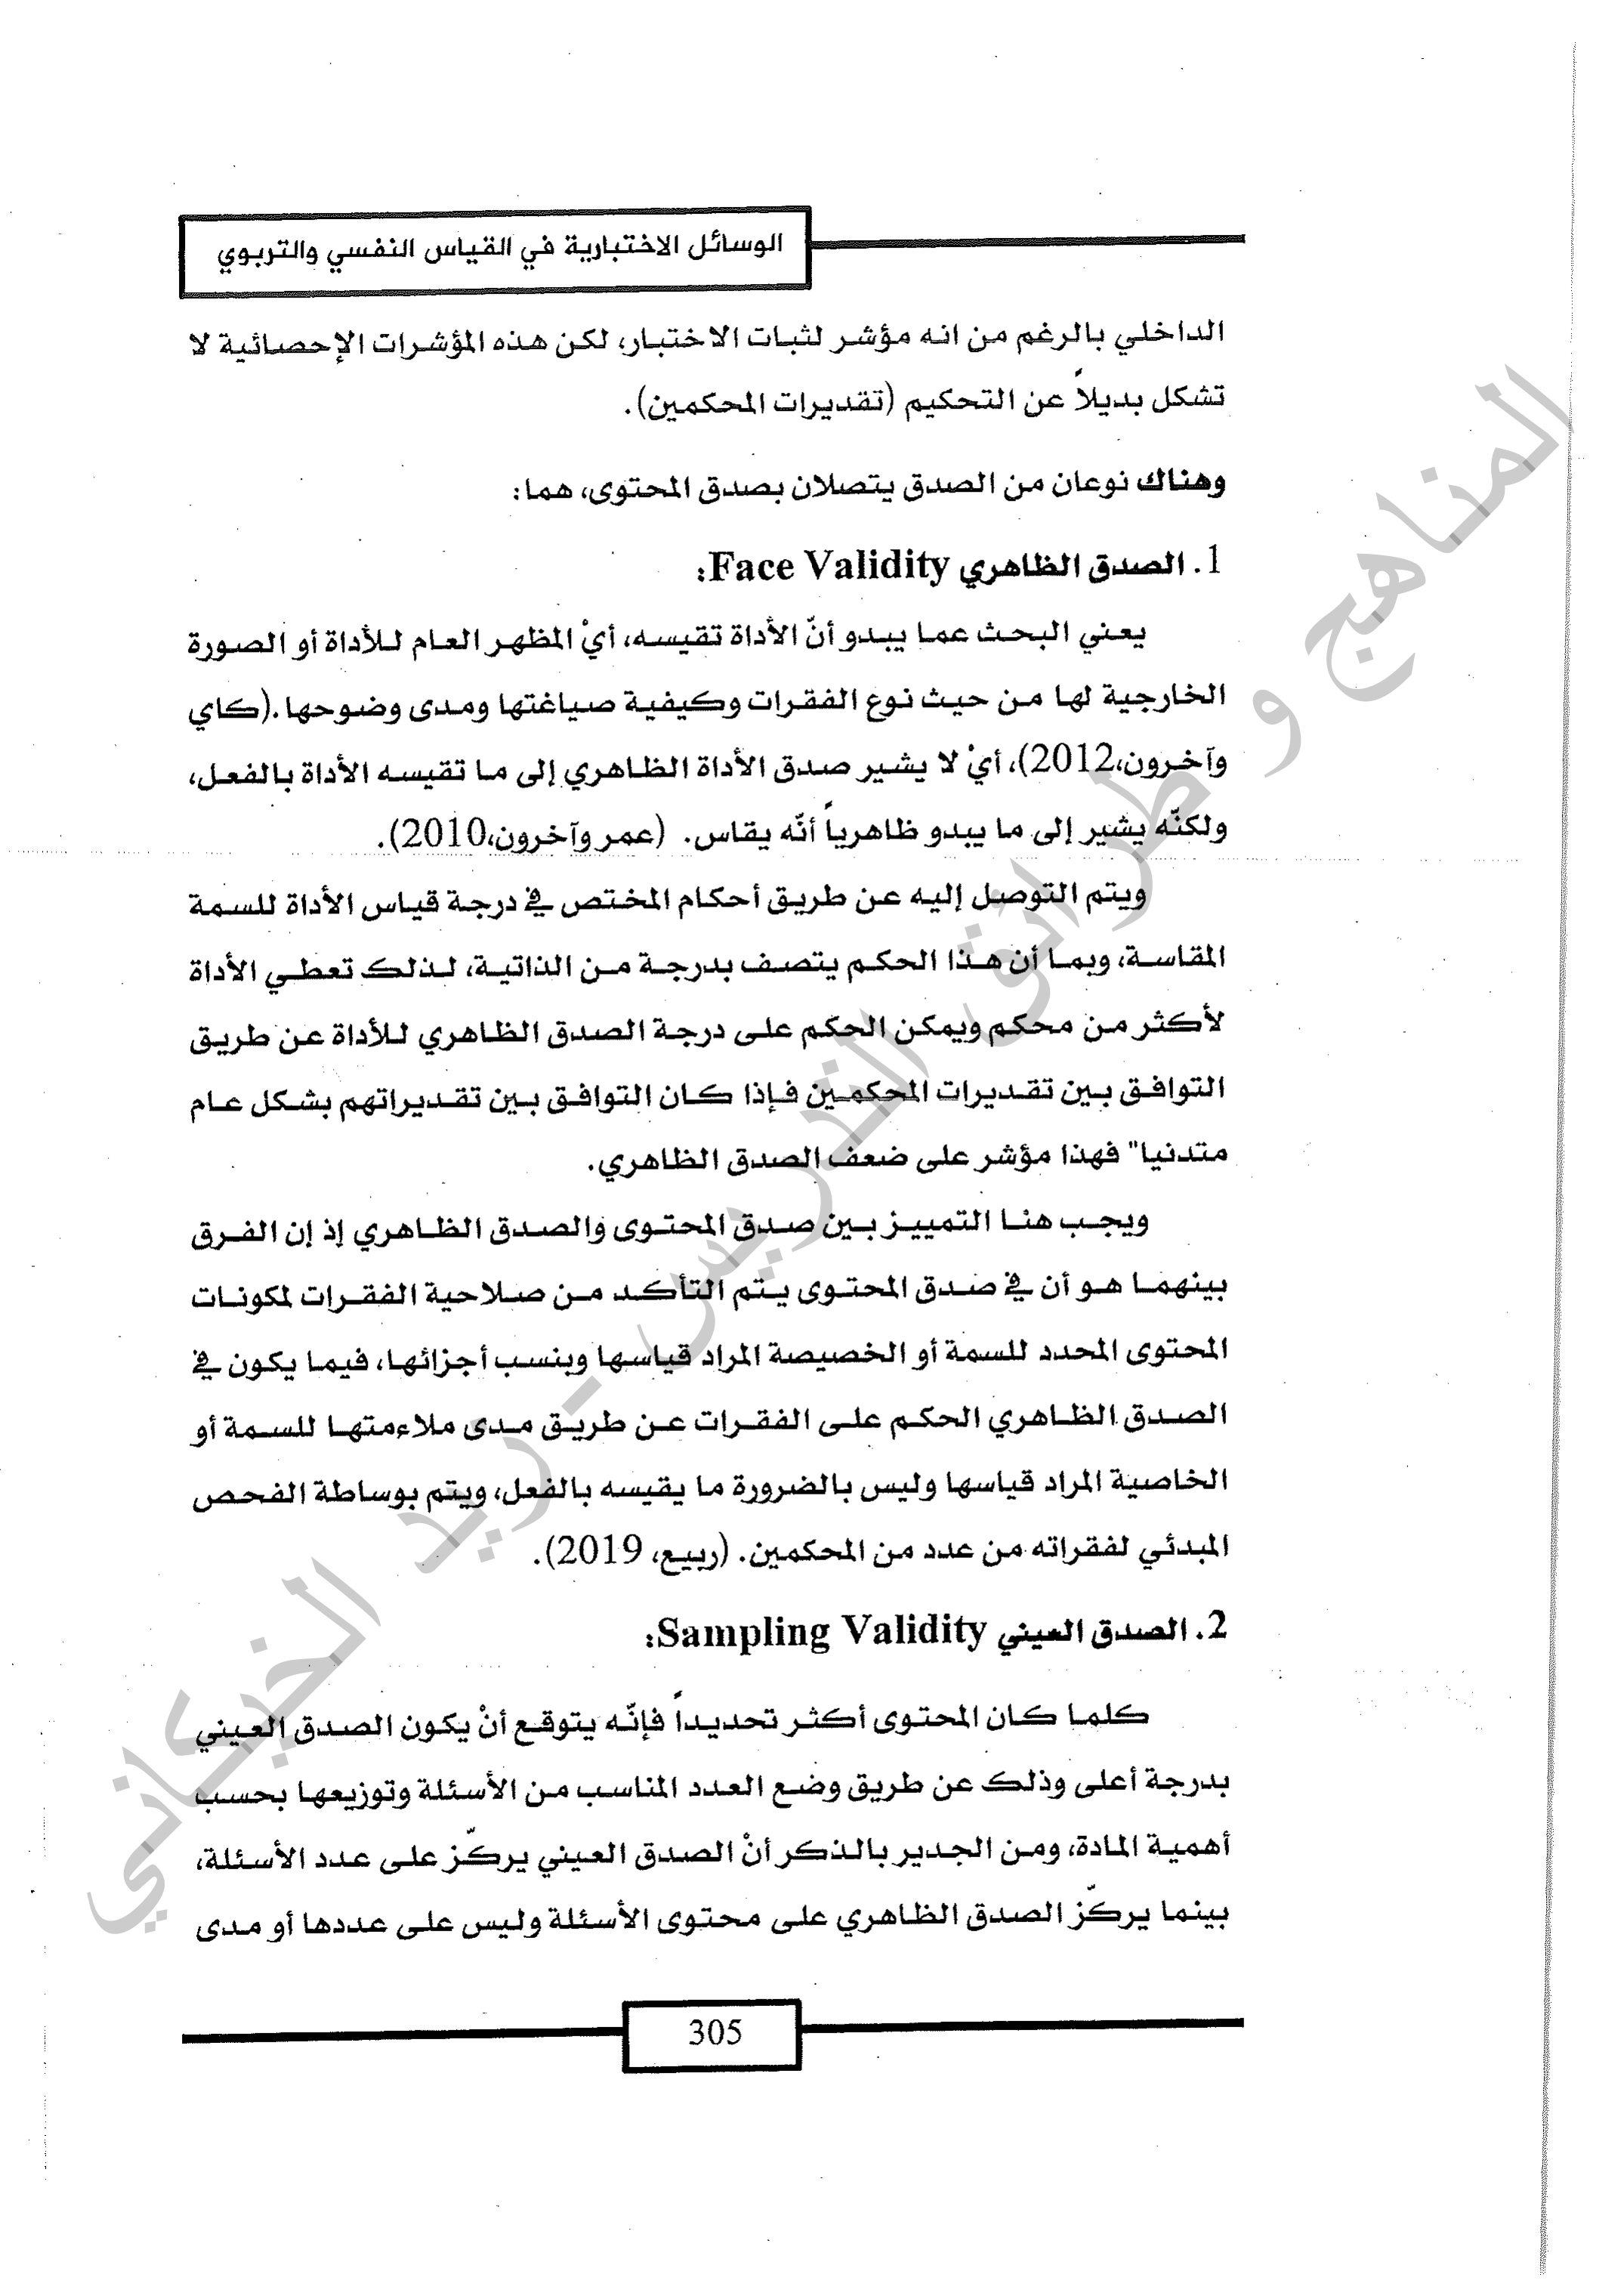 الوسائل الاختبارية في القياس النفسي والتربوي
الداخلي بالرغم من انه مؤشر لثبات الاختبار، لكن هذه المؤشرات الإحصائية لا
تشكل بديلاً عن التحكيم (تقديرات المحكمين).
وهناك نوعان من الصدق يتصلان بصدق المحتوى، هما:
1. الصدق الظاهري Face Validity:
يعني البحث عما يبدو أنّ الأداة تقيسه، أيْ المظهر العام للأداة أو الصورة
الخارجية لها من حيث نوع الفقرات وكيفية صياغتها ومدى وضوحها.(كاي
وآخرون،2012)، أيْ لا يشير صدق الأداة الظاهري إلى ما تقيسه الأداة بالفعل،
ولكنّه يشير إلى ما يبدو ظاهرياً أنّه يقاس. (عمر وآخرون،2010).
ويتم التوصل إليه عن طريق أحكام المختص في درجة قياس الأداة للسمة
المقاسة، وبما أن هذا الحكم يتصف بدرجة من الذاتية، لذلك تعطي الأداة
لأكثر من محكم ويمكن الحكم على درجة الصدق الظاهري للأداة عن طريق
التوافق بين تقديرات المحكمين فإذا كان التوافق بين تقديراتهم بشكل عام
متدنيا" فهذا مؤشر على ضعف الصدق الظاهري.
ويجب هنا التمييز بين صدق المحتوى والصدق الظاهري إذ إن الفرق
بينهما هو أن في صدق المحتوى يتم التأكد من صلاحية الفقرات لمكونات
المحتوى المحدد للسمة أو الخصيصة المراد قياسها وبنسب أجزائها، فيما يكون في
الصدق الظاهري الحكم على الفقرات عن طريق مدى ملاءمتها للسمة أو
الخاصية المراد قياسها وليس بالضرورة ما يقيسه بالفعل، ويتم بوساطة الفحص
المبدئي لفقراته من عدد من المحكمين. (ربيع، 2019).
2. الصدق العيني Sampling Validity:
كلما كان المحتوى أكثر تحديداً فإنّه يتوقع أنْ يكون الصدق العيني
بدرجة أعلى وذلك عن طريق وضع العدد المناسب من الأسئلة وتوزيعها بحسب
أهمية المادة، ومن الجدير بالذكر أنْ الصدق العيني يركّز على عدد الأسئلة،
بينما يركّز الصدق الظاهري على محتوى الأسئلة وليس على عددها أو مدى
305
المناهج و طرائق التدريس - ريد الخيكاني